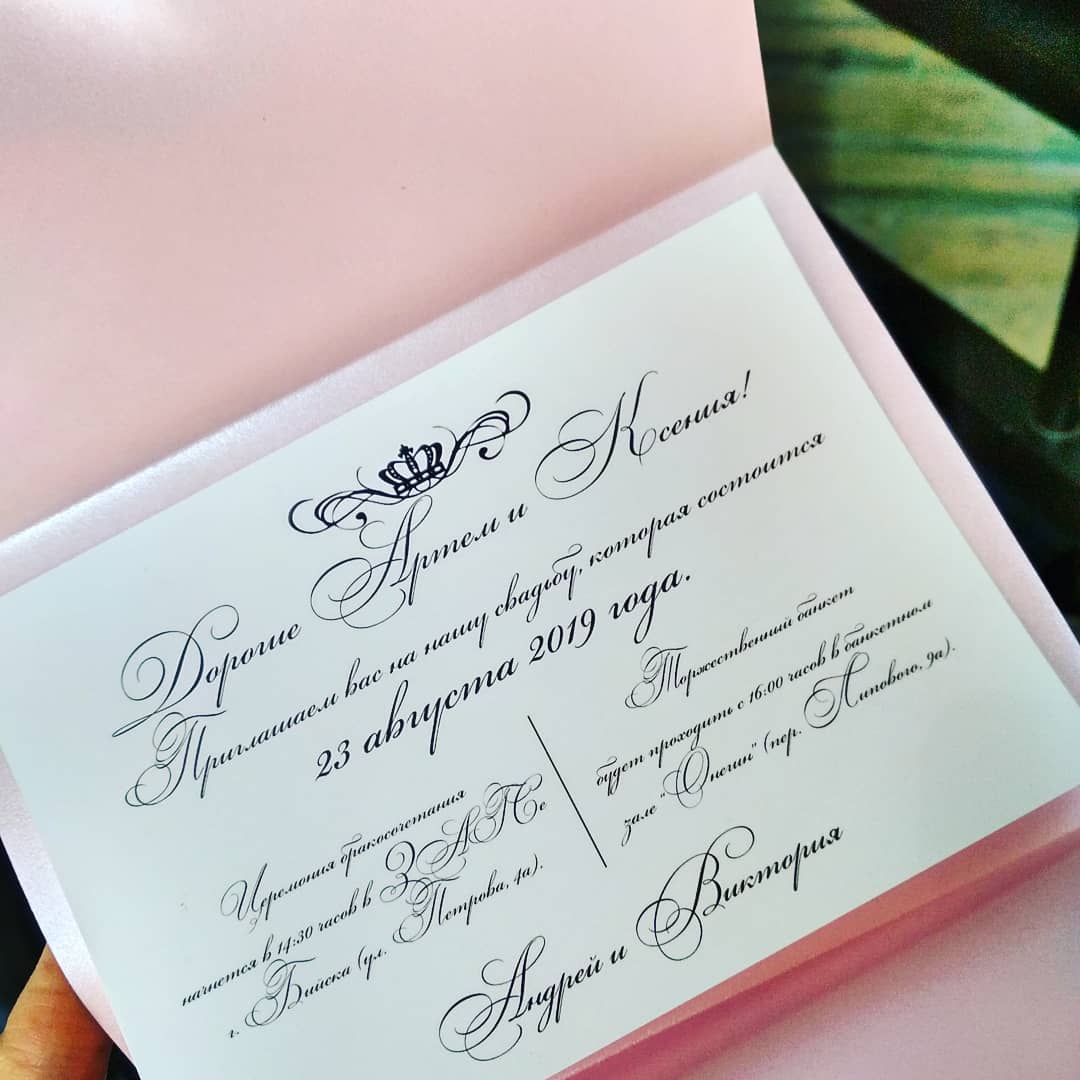 Дорогие Артем и Ксения!
Приглашаем вас на нашу свадьбу, которая состоится
23 августа 2019 года.
Церемония бракосочетания
начнется в 14:30 часов в ЗАГСе
г. Бийска (ул. Петрова, 4а).
Торжественный банкет
будет проходить с 16:00 часов в банкетном
зале "Онегин" (пер. Липового, 9а).
Андрей и Виктория